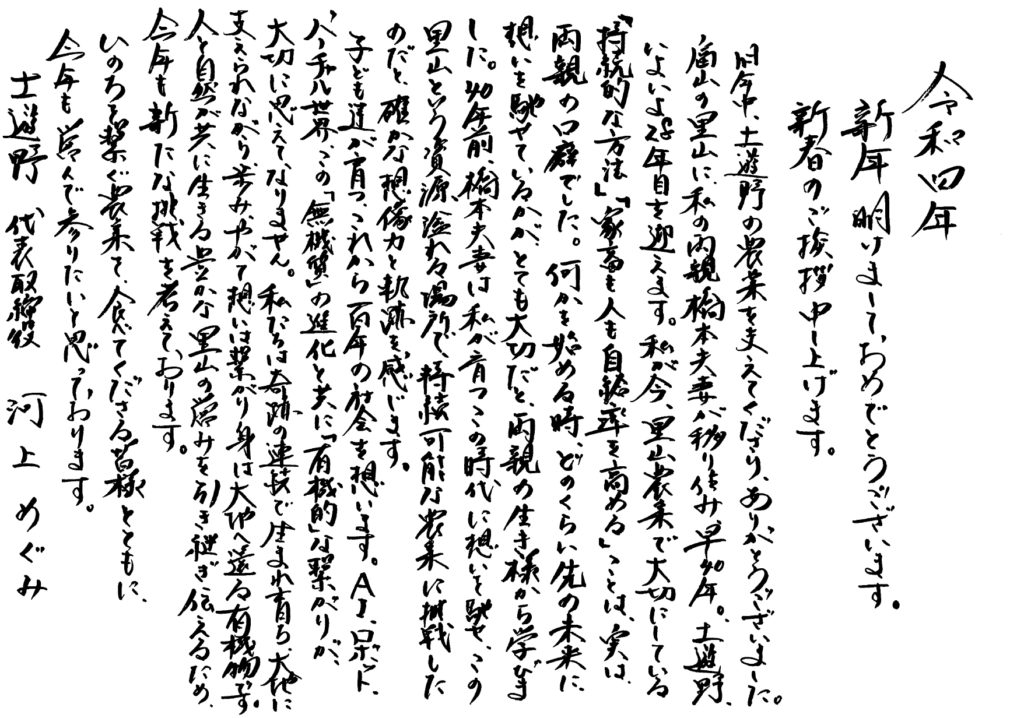 令和四年
新年明けまして、おめでとうございます。
新春のご挨拶申し上げます。
旧年中、土遊野の農業を支えてくださり、ありがとうございました。
富山の里山に、私の両親、橋本夫妻が移り住み早40年。土遊野、
いよいよ28年目を迎えます。私が今、里山農業で大切にしている
「持続的な方法」「家畜も人も自給率を高める」ことは、実は、
両親の口癖でした。何かを始める時、どのくらい先の未来に
想いを馳せているかが、とても大切だと、両親の生き様から学びま
した。40年前、橋本夫妻は私が育つこの時代に想いを馳せ、この
里山という資源溢れる場所で、持続可能な農業に挑戦した
のだと、確かな想像力と軌跡を感じます。
子ども達が育つ、これから百年の社会を想います。AI、ロボット、
バーチャル世界、この「無機質」の進化と共に「有機的」な繋がりが、
大切に思えてなりません。私たちは奇跡の連続で生まれ育ち、大地に
支えられながら、歩み、やがて想いは繋がり身は大地へ還る有機物です。
人と自然が共に生きる豊かな里山の営みを引き継ぎ伝えるため、
今年も新たな挑戦を考えております。
いのちを繋ぐ農業で、食べてくださる皆様とともに、
今年も営んで参りたいと思っております。
土遊野 代表取締役 河上めぐみ